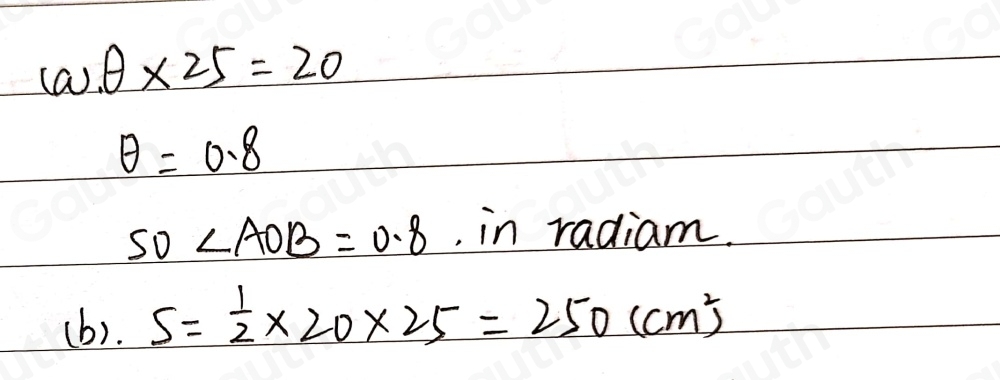 (a). θ × 25 = 20
θ = 0.8
so ∠AOB = 0.8 . in radiam.
(b). S = 1/2 × 20 × 25 = 250 (cm²)